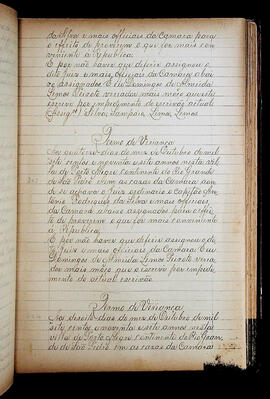 da Silva e mais officiais da Camara para
o efeito de proverem o que for mais con-
viniente á Republica.
E por não haver que deferir assignou o
dito Juiz e mais officiais da Camara abai
xo assignados. E eu Domingos de Almeida
Lemos Peixoto vereador mais moço que este
escrevo por impedimento do escrivão actual
(Assigos.) Silva, Sampaio, Lima, Lemos
Termo de Viriança
Aos quatorze dias do mez de Outubro de mil
sete centos e noventa e sete annos nesta villa
de Porto Alegre Continente do Rio Grande
de São Pedro em as casas da Camara aon
de se achava o Juiz ordinario o capitão An
tonio Rodrigues da Silva e mais officiais
da Camara abaixo assignados para o efei-
to de proverem o que for mais conviniente
á Republica.
E por não haver que deferir assignou o do
to Juiz e mais officiaes da Camara. E eu
Domingos de Almeida Lemos Peixoto verea
dor mais moço que o escrevo por impedi
mento do actual escrivão.
Termo de Viriança
Aos dezoito dias do mez de Outubro de mil
sete centos, e noventa e sete annos nesta
villa de Porto Alegre Continente do Rio Gran
de de São Pedro em as casas da Camara